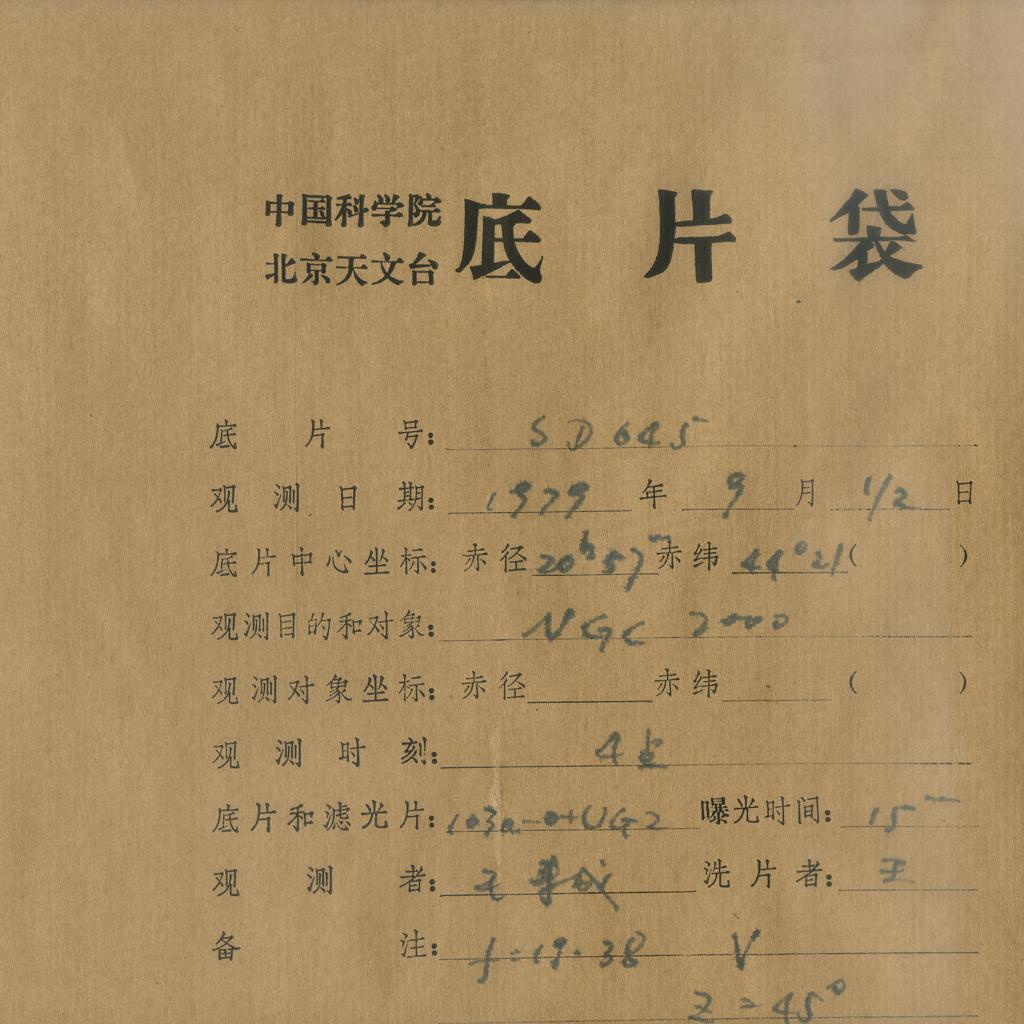 中国科学院
北京天文台
底片袋
底片号: SD645
观测日期: 1979年9月1/2日
底片中心坐标: 赤径20h57m赤纬44°21( )
观测目的和对象: NGC 7000
观测对象坐标: 赤径 赤纬 ( )
观测时刻: 4点
底片和滤光片: 103a-0+UG2 曝光时间: 15m
观测者: 王 成 洗片者: 王
备注: f=19.38 V
Z=45°